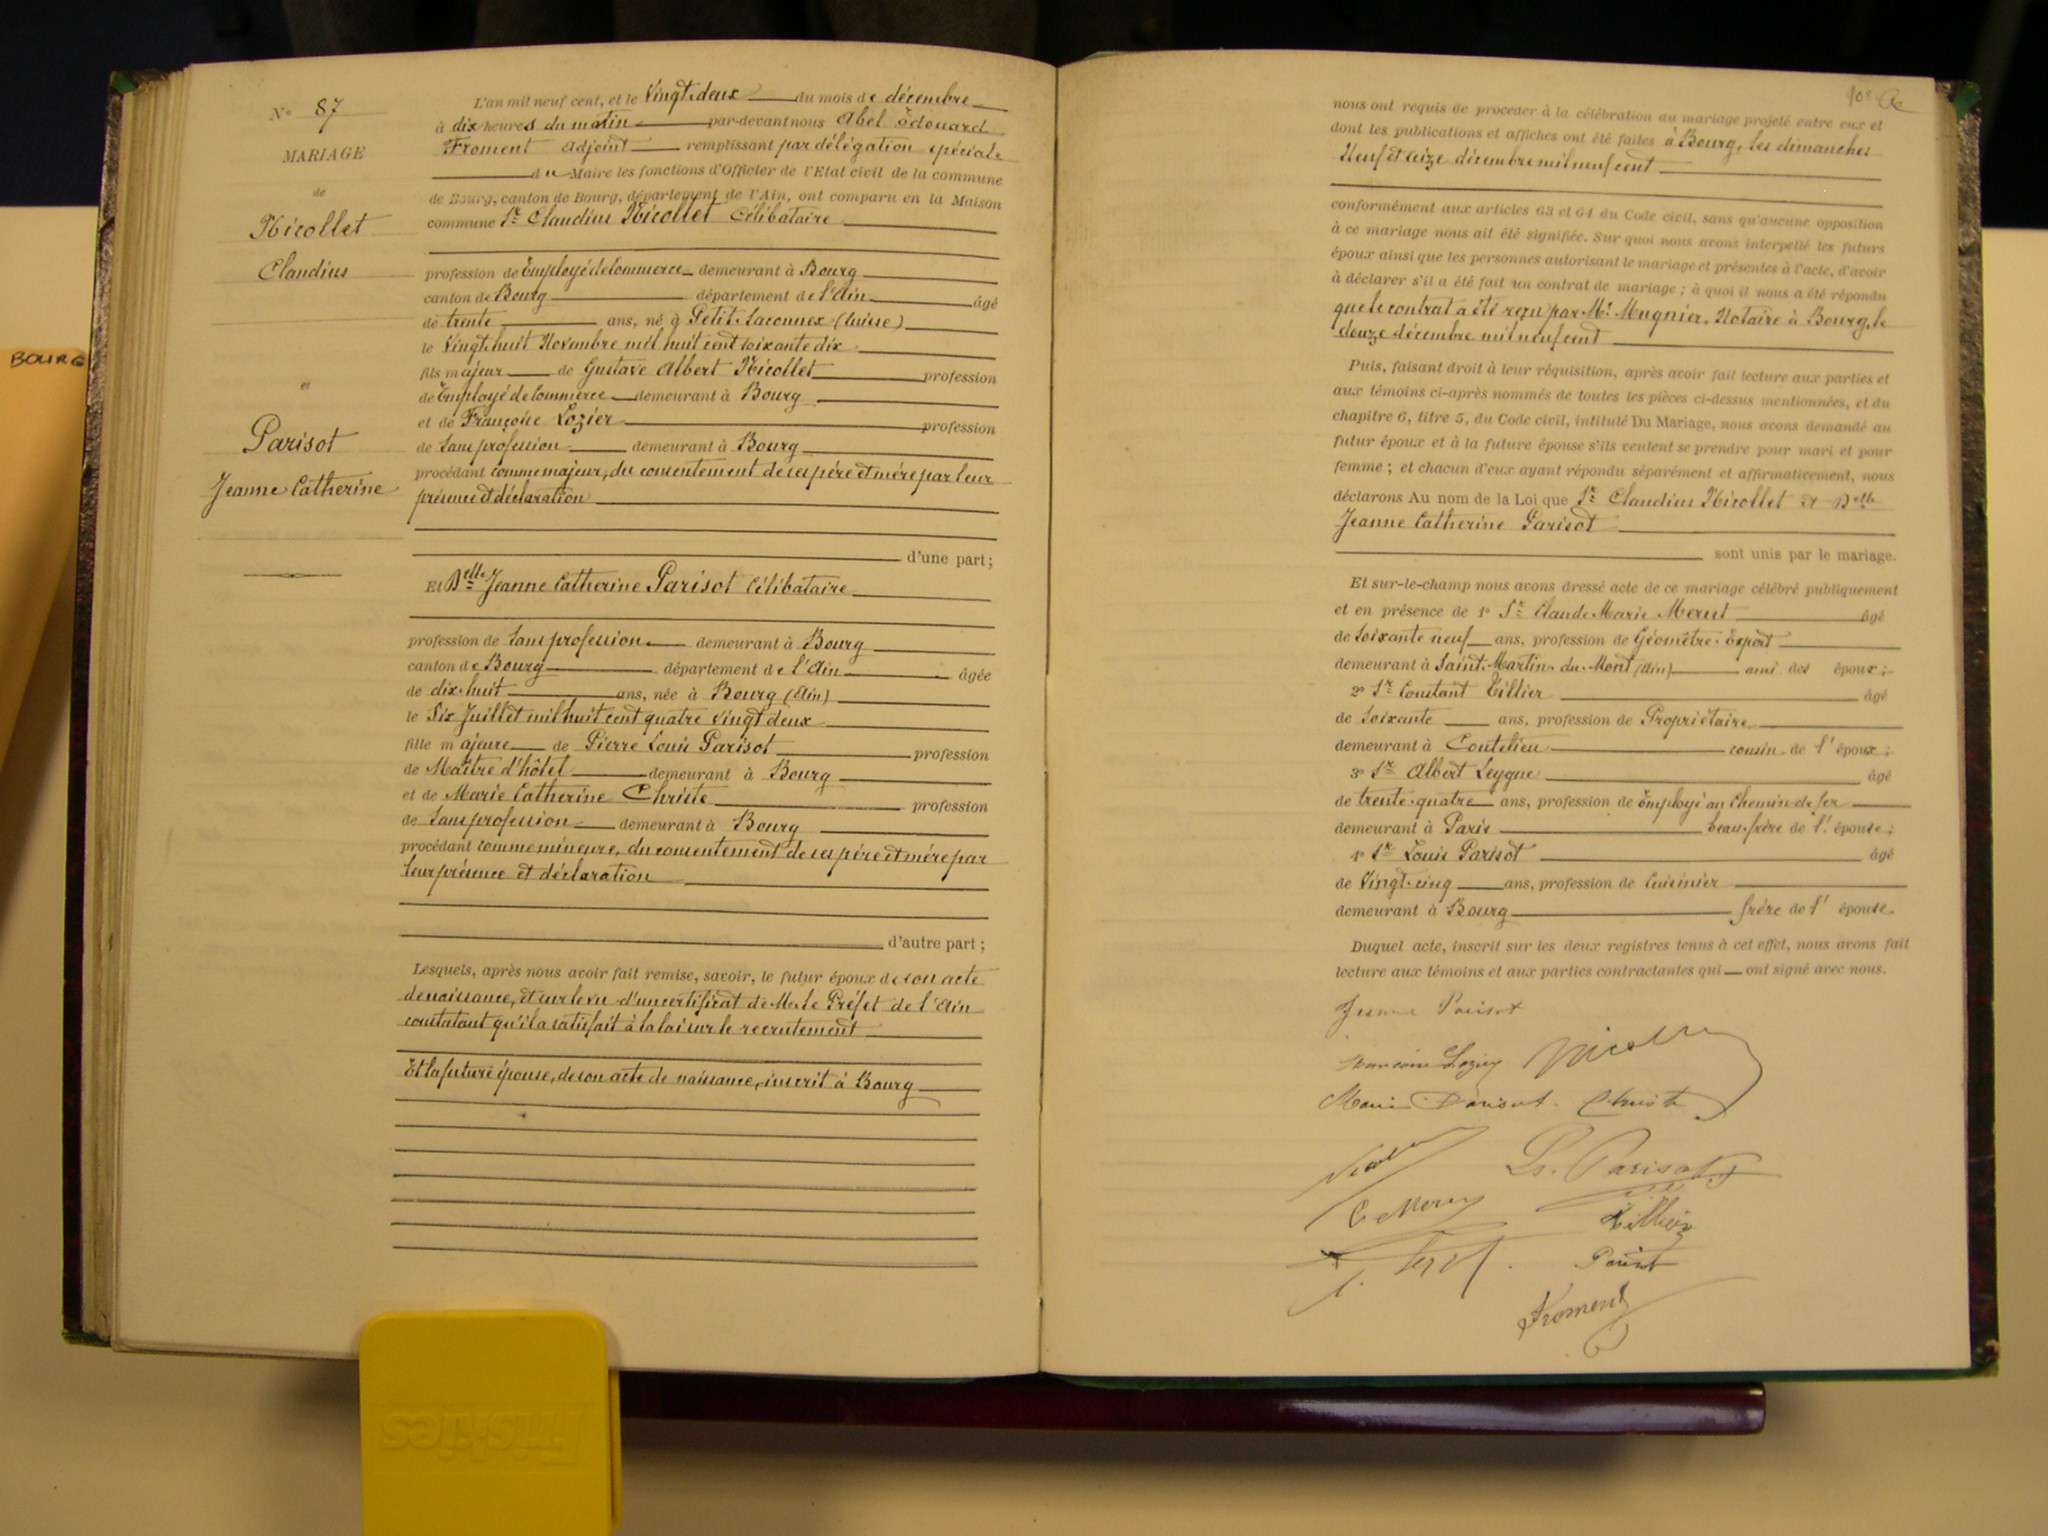 BOURG
N° 87
MARIAGE
de
Nicollet
Claudius
et
Parisot
Jeanne Catherine
L'an mil neuf cent, et le Vingt-deux du mois de décembre
à dix heures du matin par-devant nous Abel Edouard
Froment adjoint remplissant par délégation spéciale
du Maire les fonctions d'Officier de l'Etat civil de la commune
de Bourg, canton de Bourg, département de l'Ain, ont comparu en la Maison
commune Sr Claudius Nicollet Célibataire
profession de Employé de Commerce demeurant à Bourg
canton de Bourg département de l'Ain âgé
de trente ans, né à Petit-Saconnex (Suisse)
le Vingt-huit Novembre mil huit cent soixante dix
fils majeur de Gustave Albert Nicollet profession
de Employé de Commerce demeurant à Bourg
et de Françoise Lozier profession
de Sans profession demeurant à Bourg
procédant comme majeur, du consentement de ses père et mère par leur
présence et déclaration
d'une part;
Et Delle Jeanne Catherine Parisot Célibataire
profession de Sans profession demeurant à Bourg
canton de Bourg département de l'Ain âgée
de dix-huit ans, née à Bourg (Ain)
le Six Juillet mil huit cent quatre vingt deux
fille majeure de Pierre Louis Parisot profession
de Maître d'hôtel demeurant à Bourg
et de Marie Catherine Christe profession
de Sans profession demeurant à Bourg
procédant comme mineure, du consentement de ses père et mère par
leur présence et déclaration
d'autre part;
Lesquels, après nous avoir fait remise, savoir, le futur époux de son acte
de naissance, et sur le vu d'un certificat de M. le Préfet de l'Ain
constatant qu'il a satisfait à la loi sur le recrutement
Et la future épouse, de son acte de naissance, inscrit à Bourg
nous ont requis de procéder à la célébration du mariage projeté entre eux et
dont les publications et affiches ont été faites à Bourg, les dimanches
Neuf et seize décembre mil neuf cent
conformément aux articles 63 et 64 du Code civil, sans qu'aucune opposition
à ce mariage nous ait été signifiée. Sur quoi nous avons interpellé les futurs
époux ainsi que les personnes autorisant le mariage et présentes à l'acte, d'avoir
à déclarer s'il a été fait un contrat de mariage; à quoi il nous a été répondu
que le contrat a été reçu par Me Mugnier, Notaire à Bourg, le
douze décembre mil neuf cent
Puis, faisant droit à leur réquisition, après avoir fait lecture aux parties et
aux témoins ci-après nommés de toutes les pièces ci-dessus mentionnées, et du
chapitre 6, titre 5, du Code civil, intitulé Du Mariage, nous avons demandé au
futur époux et à la future épouse s'ils veulent se prendre pour mari et pour
femme; et chacun d'eux ayant répondu séparément et affirmativement, nous
déclarons Au nom de la Loi que Sr Claudius Nicollet et Delle
Jeanne Catherine Parisot
sont unis par le mariage.
Et sur-le-champ nous avons dressé acte de ce mariage célébré publiquement
et en présence de 1° Sr Claude Marie Merut âgé
de Soixante neuf ans, profession de Géomètre-Expert
demeurant à Saint-Martin-du-Mont (Ain) ami des époux;
2° Sr Constant Tillier âgé
de Soixante ans, profession de Propriétaire
demeurant à cousin de l'époux;
3° Sr Albert Leygue âgé
de trente-quatre ans, profession de Employé au Chemin de fer
demeurant à Paris beau-frère de l'épouse;
4° Sr Louis Parisot âgé
de Vingt-cinq ans, profession de Cuisinier
demeurant à Bourg frère de l'épouse.
Duquel acte, inscrit sur les deux registres tenus à cet effet, nous avons fait
lecture aux témoins et aux parties contractantes qui ont signé avec nous.
Jeanne Parisot
Françoise Lozier Nicollet
Marie Parisot Christe
Ls. Parisot
Tillier
Parisot
Froment